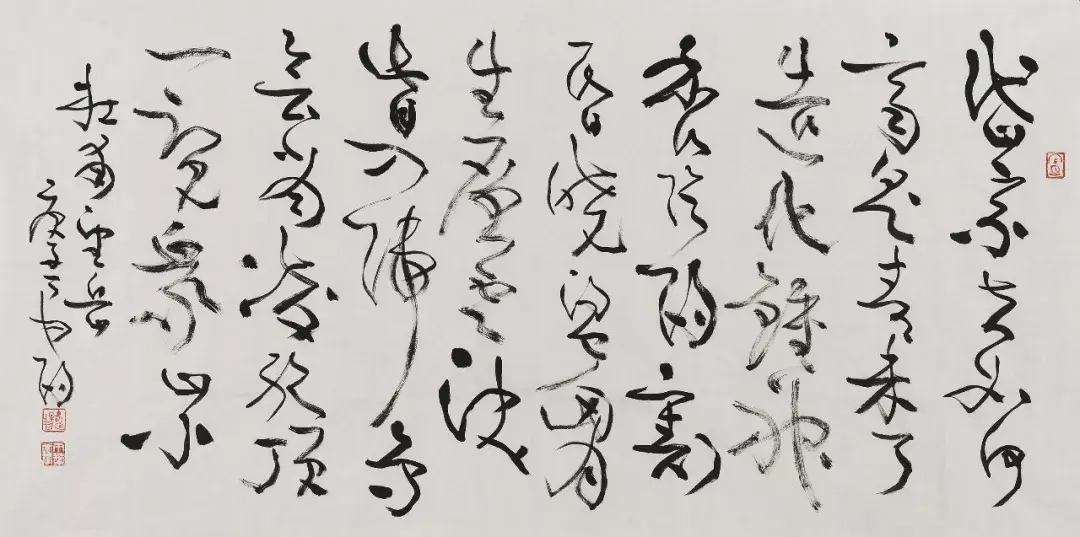 岱宗夫如何
齊魯青未了
造化鍾神
秀陰陽割
昏曉盪胸
生層雲決
眥入歸鳥
會當凌絕頂
一覽衆山小
杜甫望岳
庚子